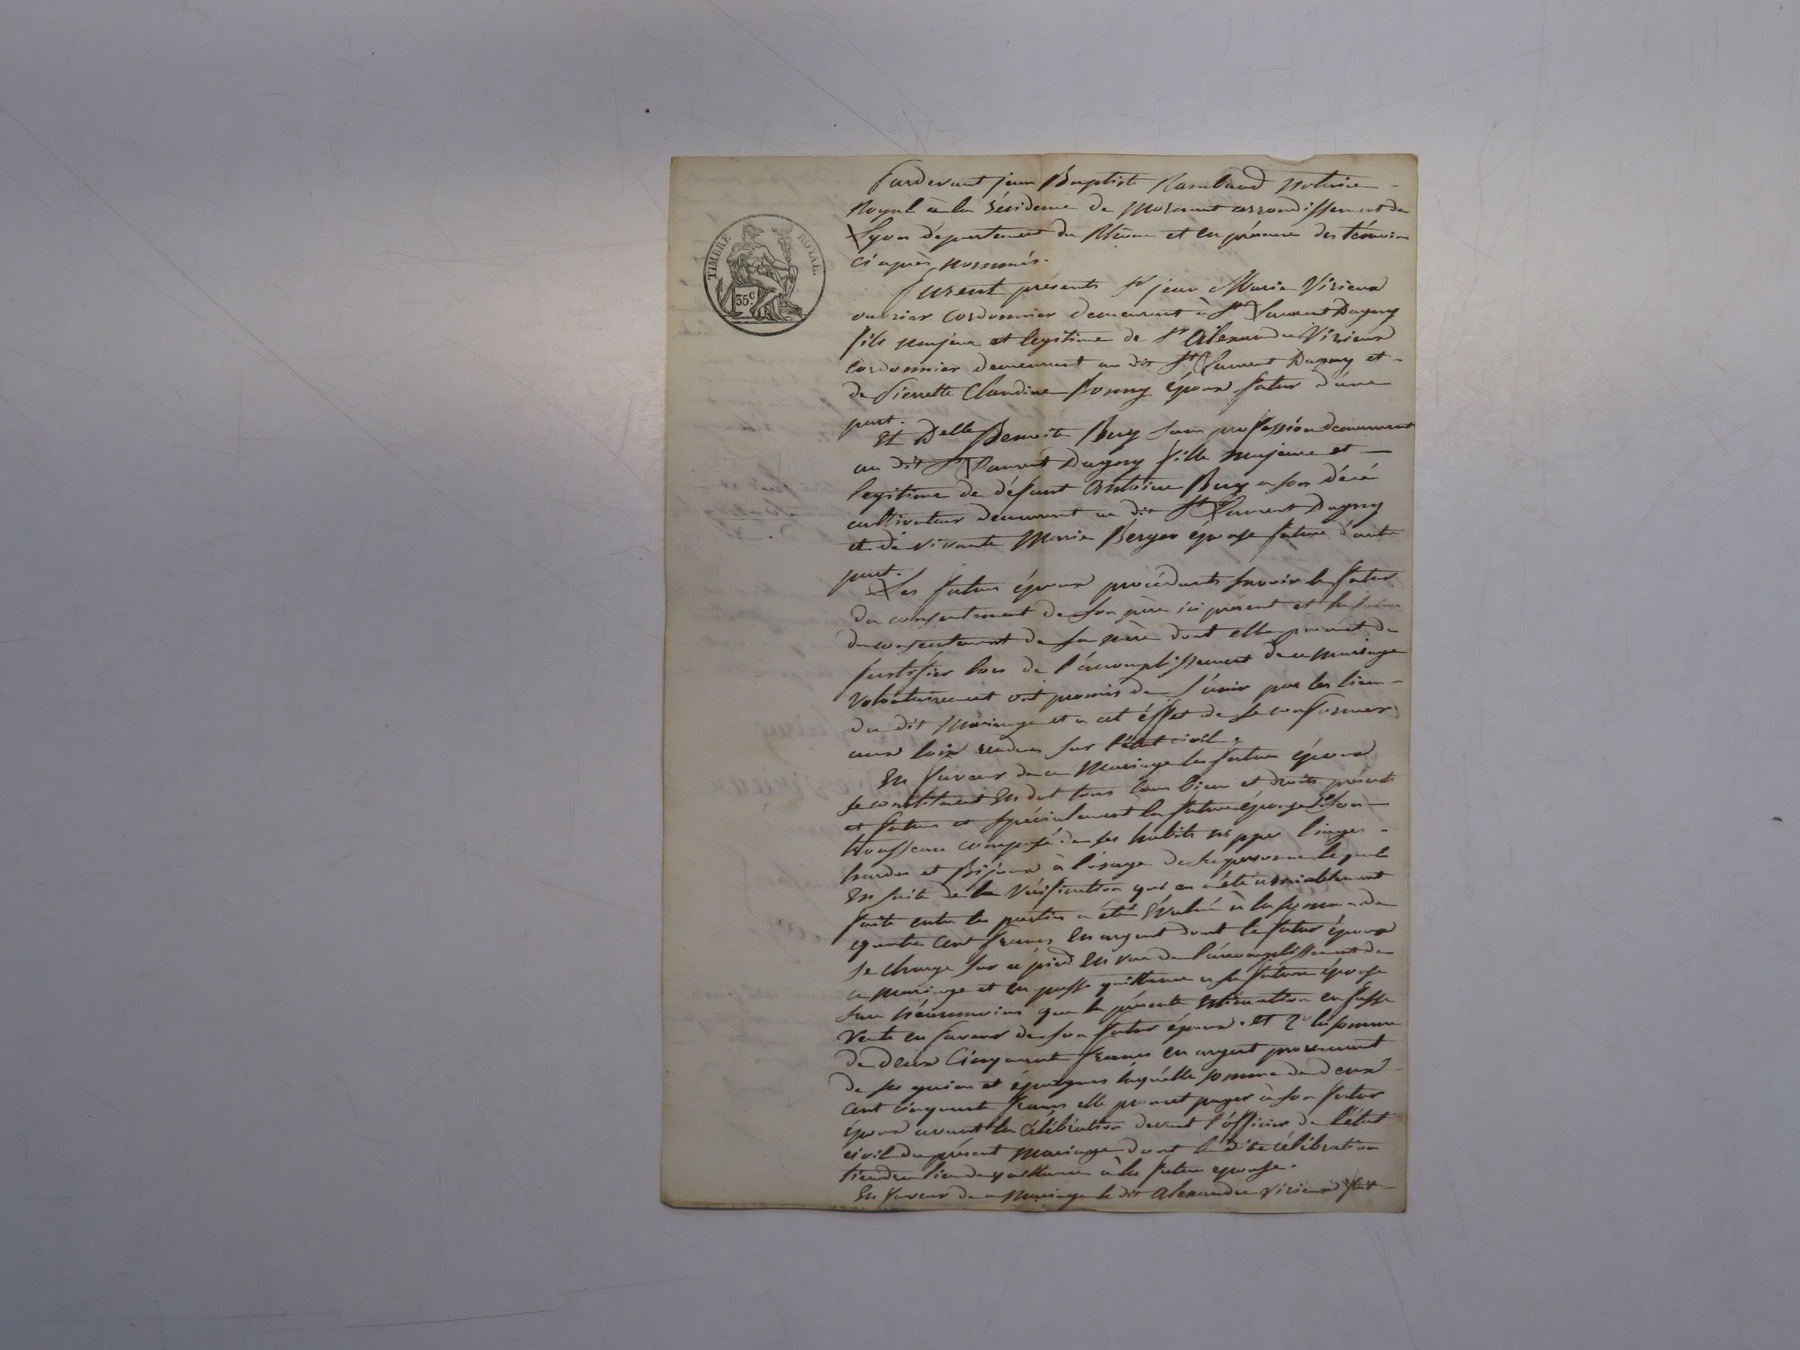 TIMBRE ROYAL.
35c.
Pardevant jean Baptiste Rambaud notaire
Royal à la Résidence de Mornant arrondissement de
Lyon département du Rhône et en présence des témoins
ci après nommés.
furent présents Sr jean Marie Virieux
ouvrier cordonnier demeurant à St Laurent Dagny
fils majeur et legitime de Sr Alexandre Virieux
cordonnier demeurant au dit St Laurent Dagny et
de Pierrette Claudine Bonny époux futur d'une
part.
Et Delle Benoite Buy sans profession demeurant
au dit St Laurent Dagny fille majeure et
legitime de défunt Antoine Buy a son décé
cultivateur demeurant au dit St Laurent Dagny
et de vivante Marie Berger épouse future d'autre
part.
Les futurs époux procédants savoir le futur
du consentement de son père ici présent et la future
du consentement de sa mère dont elle promet de
justifier lors de l'accomplissement de ce mariage
volontairement ont promis de s'unir par les liens
du dit mariage et a cet éffet de se conformer
aux loix rendues sur l'état civil.
En faveur de ce mariage les futurs époux
se constituent en dot tous leurs biens et droits présents
et futurs et spécialement la future épouse 1e son
trousseau composé de ses habits nippes linges
hardes et bijoux à l'usage de sa personne lequel
en suite de la vérification qui en a été amiablement
faite entre les parties a été évalué à la somme de
quatre cent francs en argent dont le futur époux
se charge sur ce pied en vue de l'accomplissement de
ce mariage et en passe quittance a sa future épouse
sans néanmoins que la présente estimation en fasse
vente en faveur de son futur époux. et 2° la somme
de deux cinquante francs en argent provenant
de ses gains et épargnes laquelle somme de deux
cent cinquante francs elle promet payer à son futur
époux avant la célébration devant l'officier de l'état
civil du présent mariage dont la dite célébration
tiendra lieu de quittance à la future epouse.
En faveur de ce mariage le dit Alexandre Virieux fait